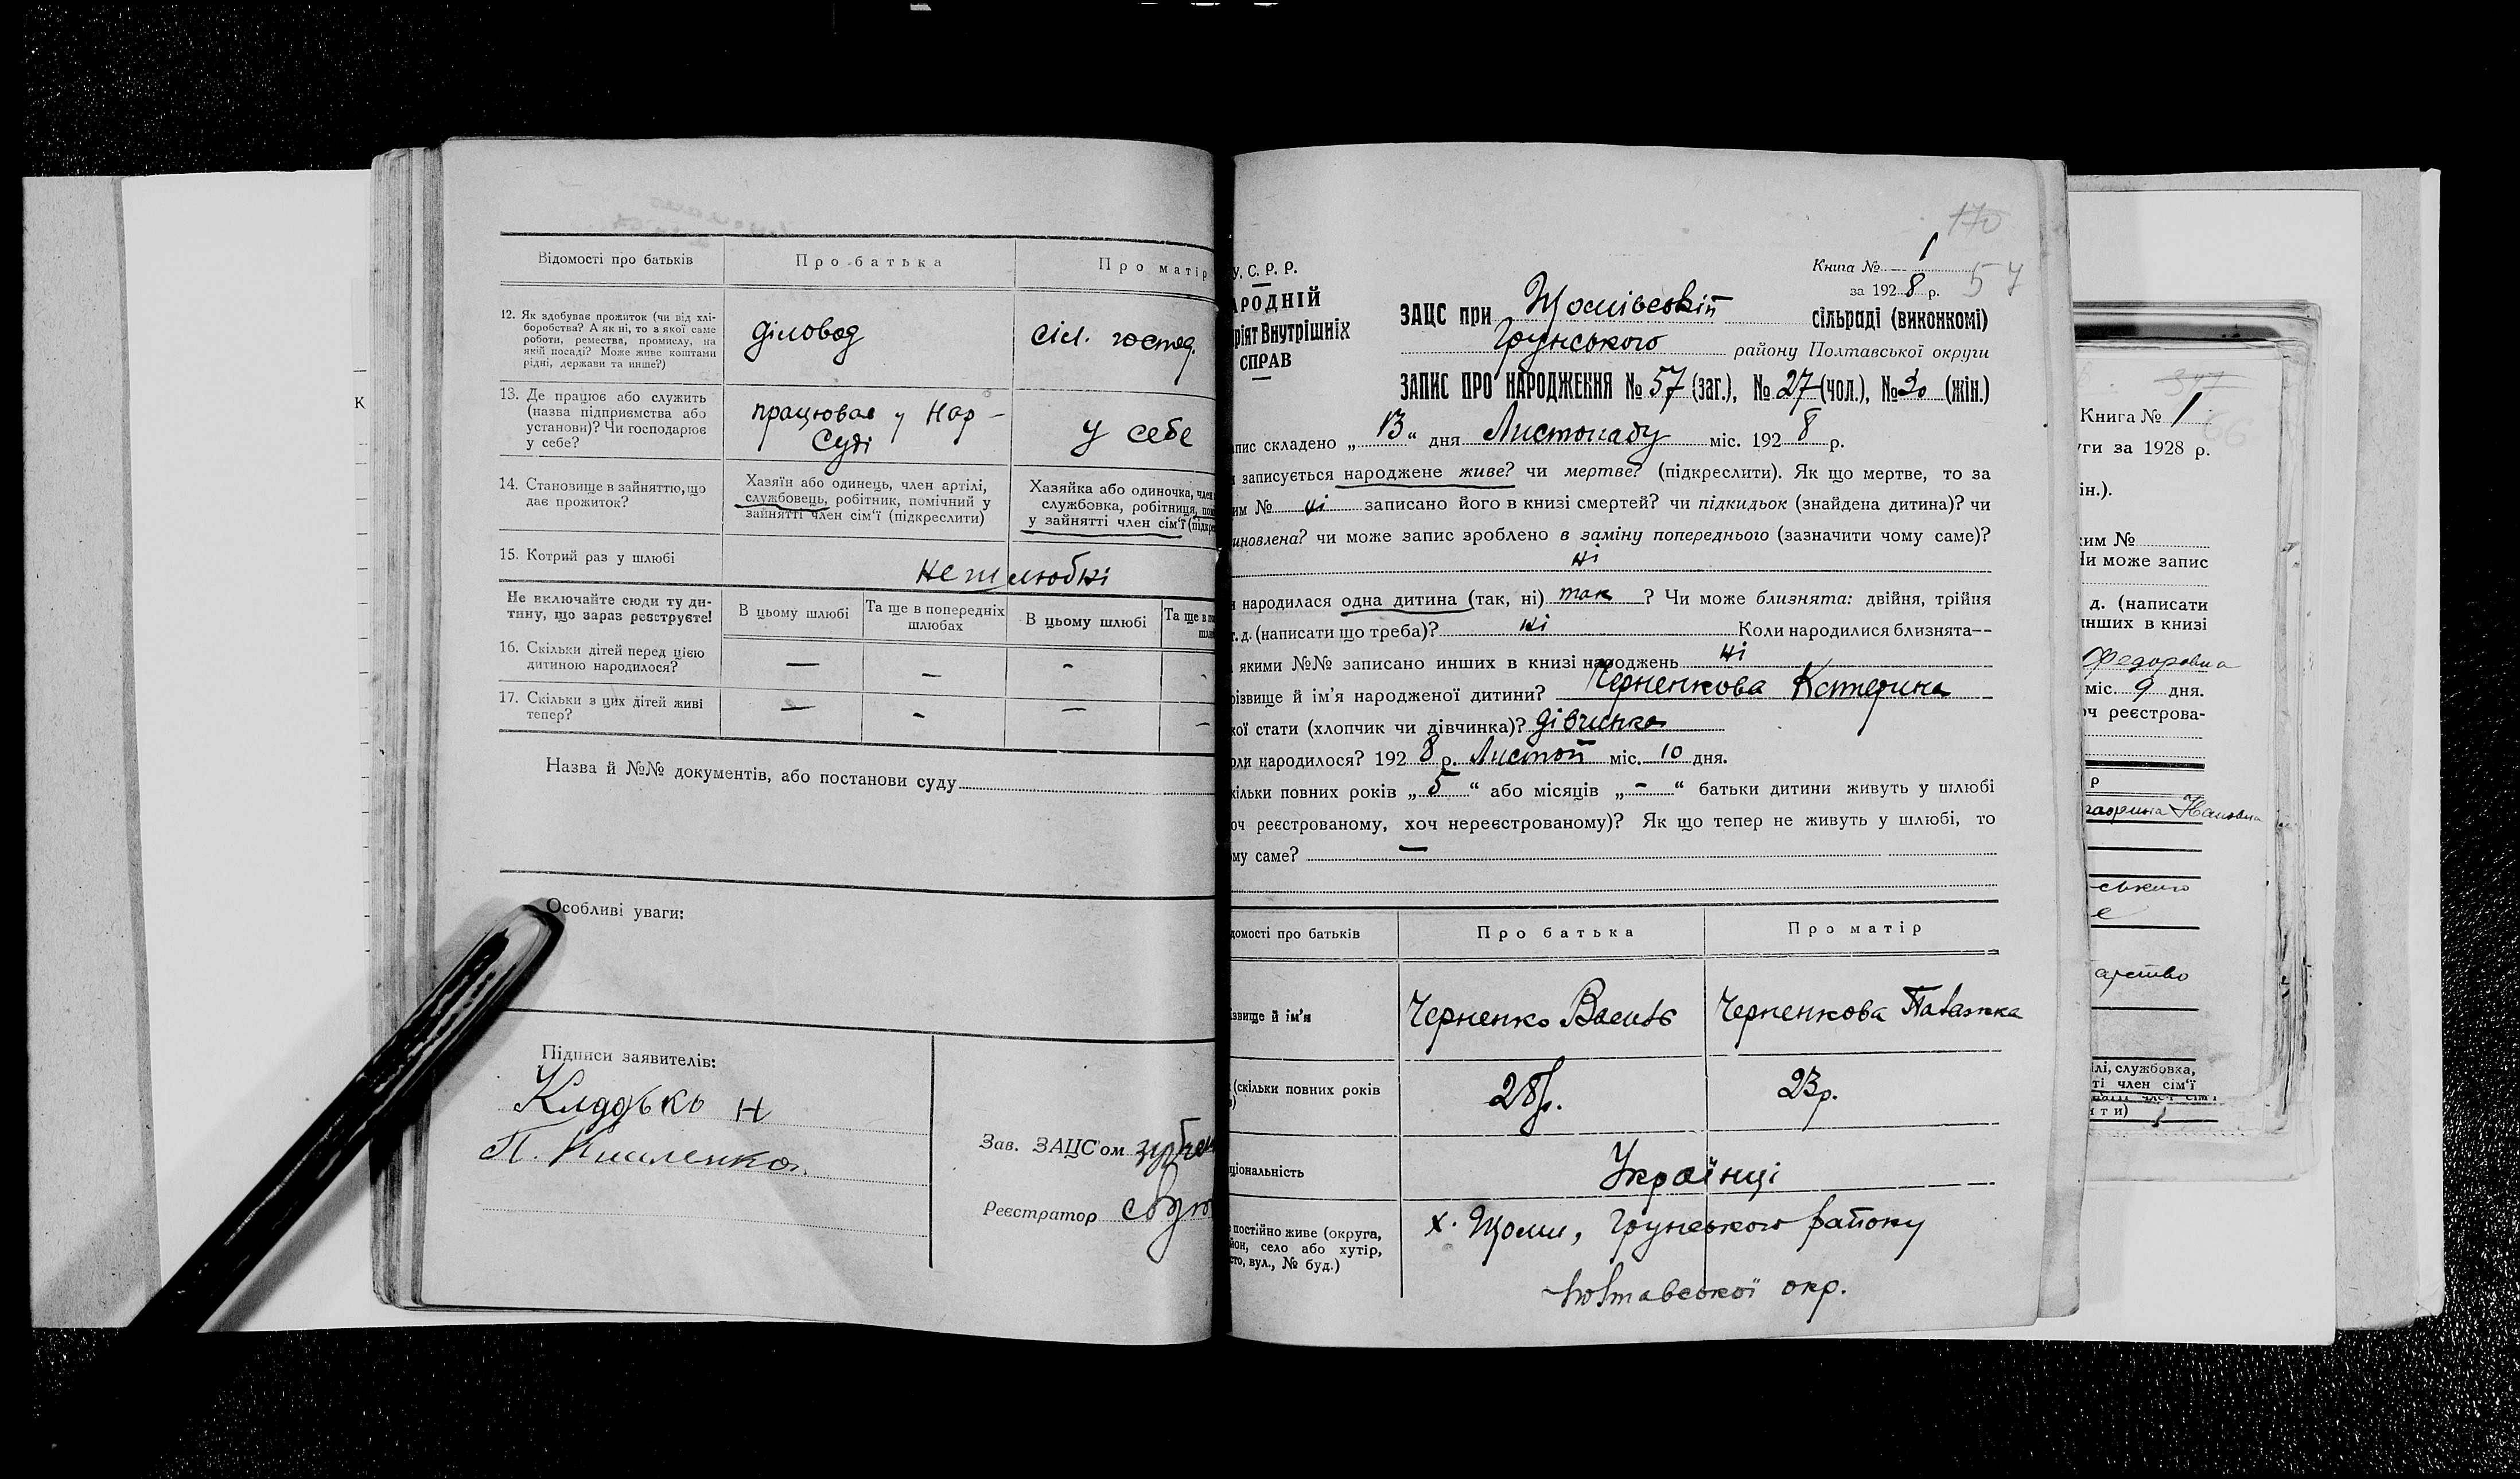 Відомості про батьків
Про батька
Про матір
12. Як здобуває прожиток (чи від хлі-
боробства? А як ні, то з якої саме
роботи, ремества, промислу, на
якій посаді? Може живе коштами
рідні, держави та инше?)
діловод
сіл. господ.
13. Де працює або служить
(назва підприємства або
установи)? Чи господарює
у себе?
працював у Нар –
Суді
у себе
14. Становище в зайняттю, що
дає прожиток?
Хазяїн або одинець, член артілі,
службовець, робітник, помічний у
зайнятті член сім'ї (підкреслити)
Хазяйка або одиночка, член
службовка, робітниця,
у зайнятті член сім'ї
15. Котрий раз у шлюбі
нешлюбні
Не включайте сюди ту ди-
тину, що зараз реєструєте!
В цьому шлюбі
Та ще в попередніх
шлюбах
В цьому шлюбі
Та ще в
16. Скільки дітей перед цією
дитиною народилося?
— — - -
17. Скільки з цих дітей живі
тепер?
— - — —
Назва й №№ документів, або постанови суду
Особливі уваги:
Підписи заявителів:
Н
П.
Зав. ЗАЦС'ом
Реєстратор
170
У. С. Р. Р.
АРОДНІЙ
ріят Внутрішніх
СПРАВ
Книга № 1
за 1928 р. 57
ЗАЦС при сільраді (виконкомі)
Грунського району Полтавської округи
ЗАПИС ПРО НАРОДЖЕННЯ № 57 (заг.), № 27 (чол.), № 30 (жін.)
апис складено „13“ дня Листопаду міс. 1928 р.
записується народжене живе? чи мертве? (підкреслити). Як що мертве, то за
им № ні записано його в книзі смертей? чи підкидьок (знайдена дитина)? чи
иновлена? чи може запис зроблено в заміну попереднього (зазначити чому саме)?
ні
народилася одна дитина (так, ні) так ? Чи може близнята: двійня, трійня
т. д. (написати що треба)? ні Коли народилися близнята—
якими №№ записано инших в книзі народжень ні
різвище й ім'я народженої дитини? Черненкова Катерина
кої стати (хлопчик чи дівчинка)? дівчинка
оли народилося? 1928 р. Листоп міс. 10 дня.
кільки повних років „5“ або місяців „-“ батьки дитини живуть у шлюбі
оч реєстрованому, хоч нереєстрованому)? Як що тепер не живуть у шлюбі, то
ому саме? —
домості про батьків
Про батька
Про матір
ізвище й ім'я
Черненко Василь
Черненкова Палажка
(скільки повних років
28 р.
23 р.
ціональність
Українці
постійно живе (округа,
йон, село або хутір,
сто, вул., № буд.)
х. Щоми, Грунського району
Полтавської окр.
К
347
Книга № 1
66
уги за 1928 р.
ін.).
ким №
Чи може запис
д. (написати
инших в книзі
Федоровна
міс. 9 дня.
оч реєстрова-
р
ського
е
арство
ілі, службовка,
ті член сім'ї
ити)